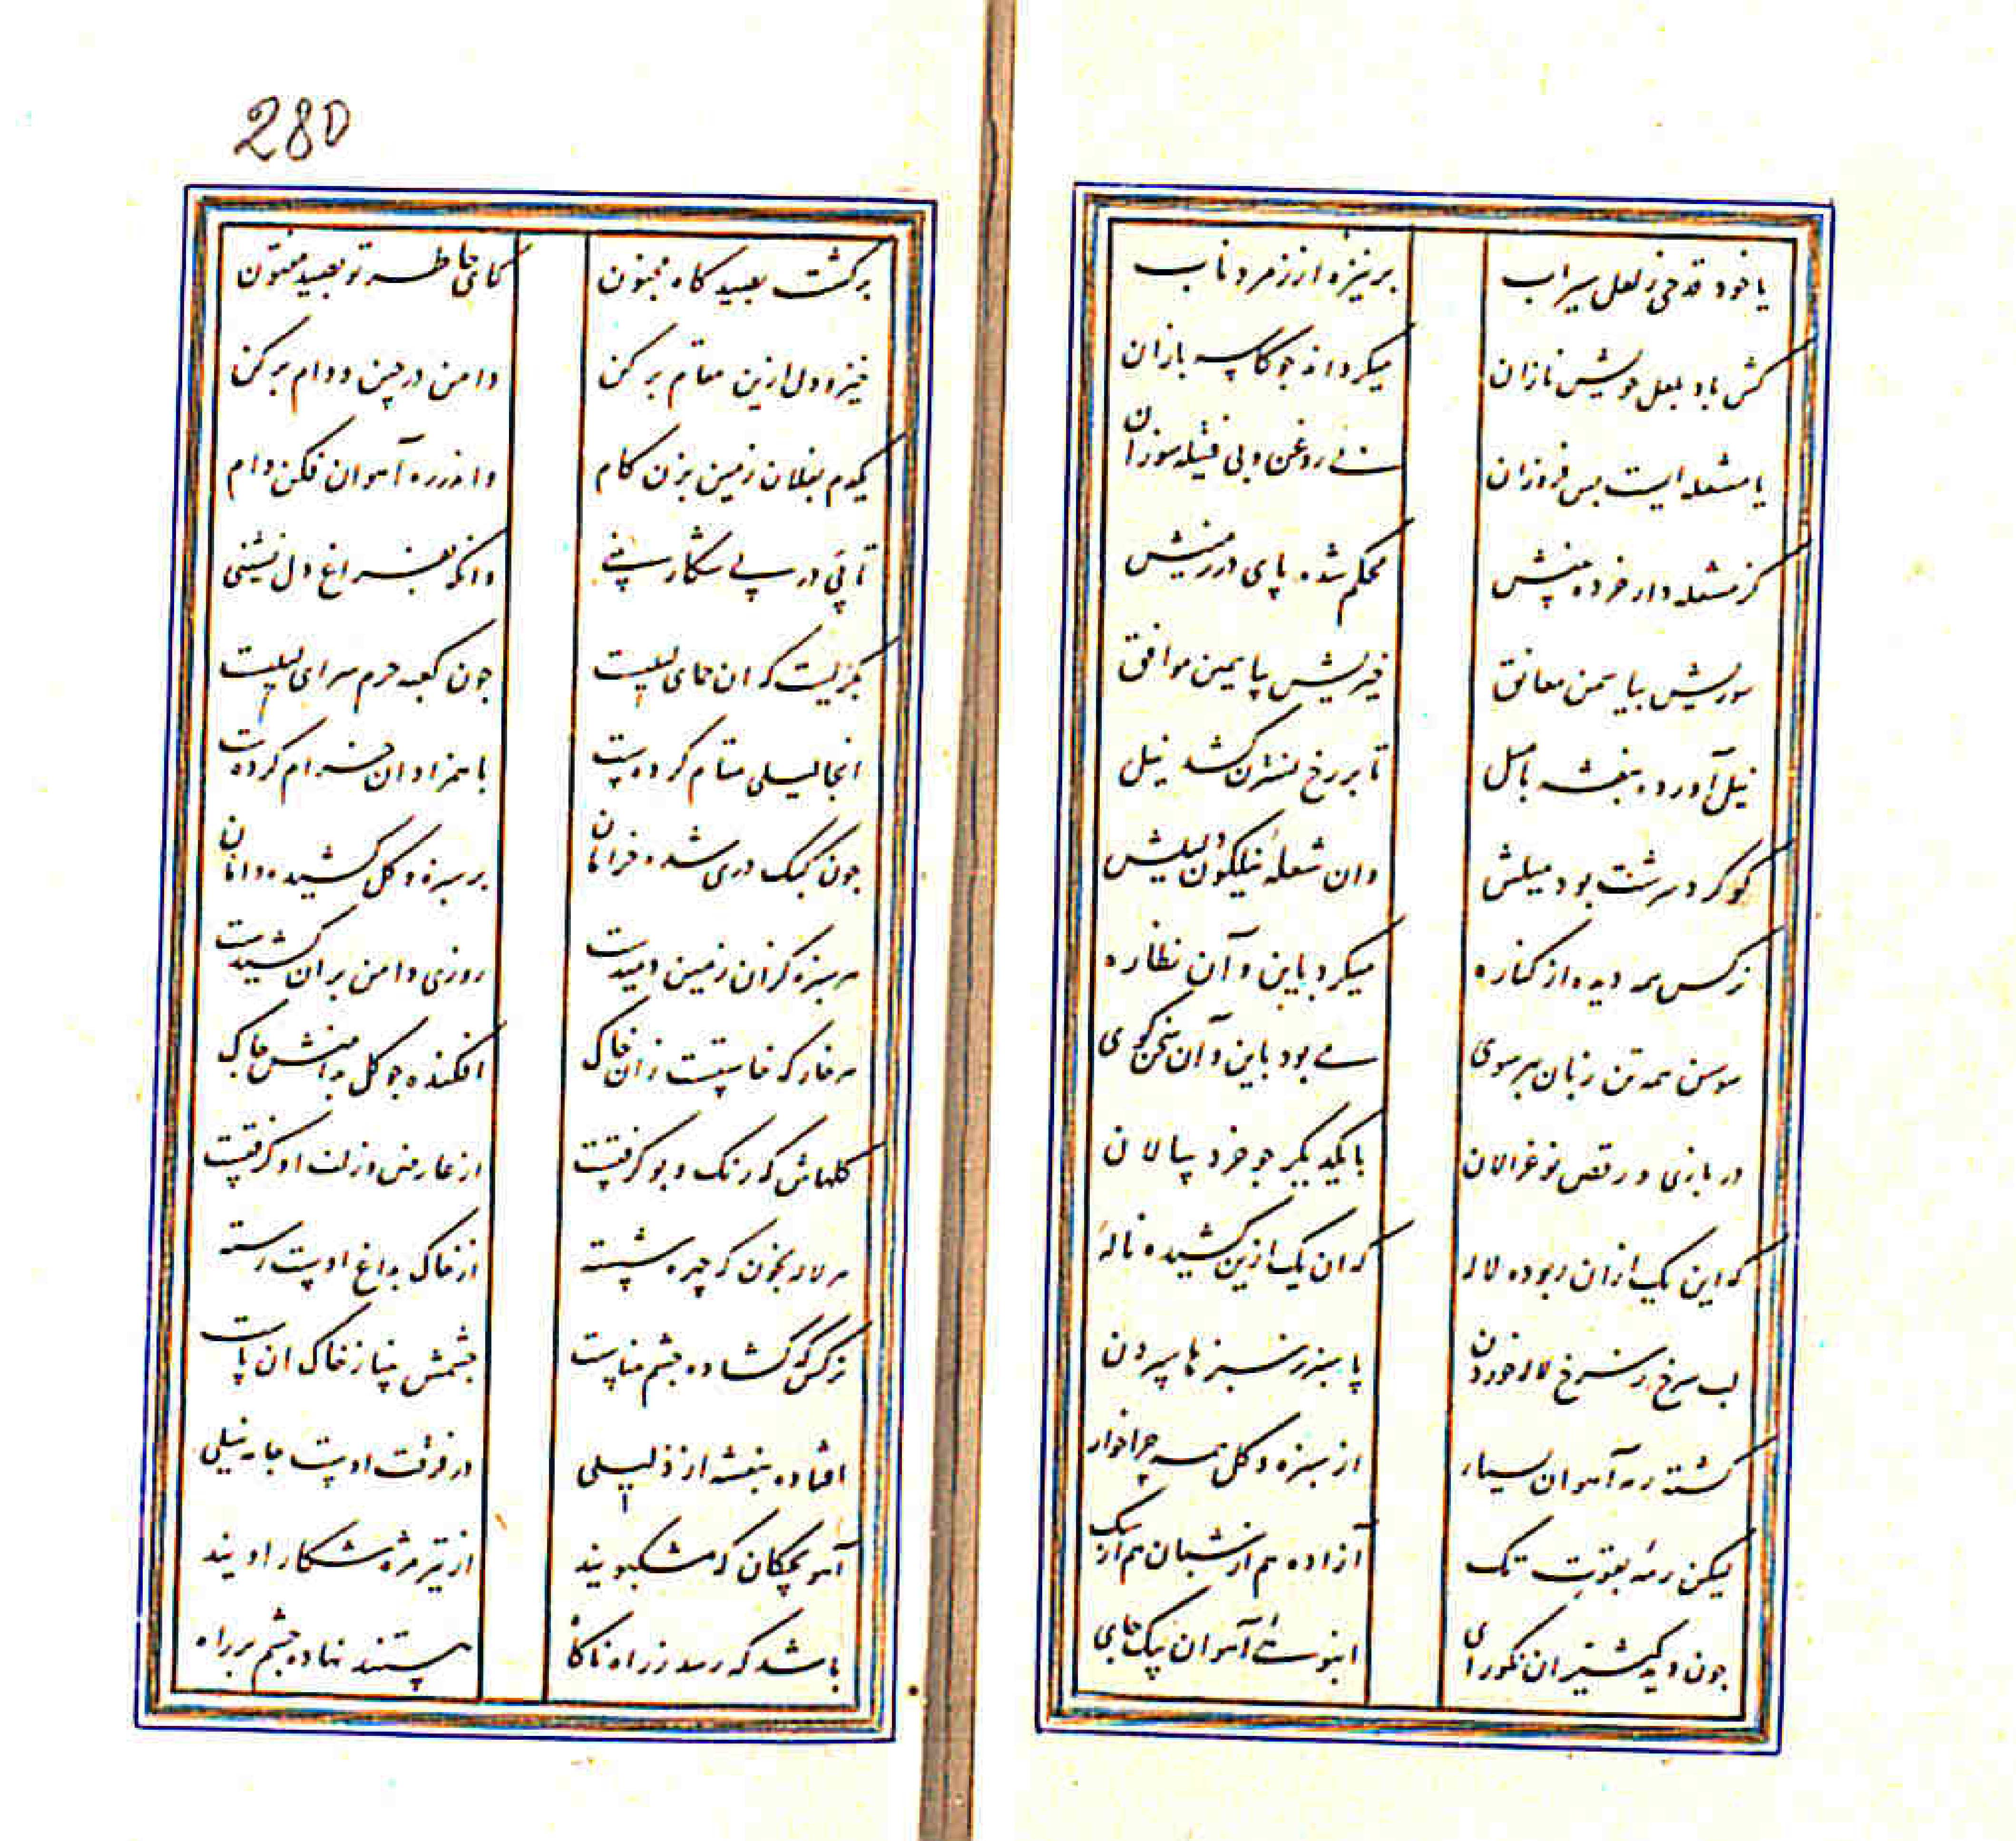 280
یا خود قدحی ز لعل سیراب
بر نیزه از زمرد ناب
کش باد بلعل خویش نازان
میکرداند جو کاسه بازان
یا مشعله ایست بس فروزان
بی روغن و بی فتیله سوزان
کز مشعله دار خرده بینش
محکم شده پای در زمینش
سوریش بیاسمن معانق
خیریش بیاسمین موافق
نیل آورده بنفشه با میل
تا بر رخ نسترن کشد نیل
کوکرد سرشت بود میلش
وان شعلهٔ نیلکون دلیلش
نرکس همه دیده از کناره
میکرد باین و آن نظاره
سوسن همه تن زبان بهر سوی
می بود باین و آن سخن کوی
در بازی و رقص نو غزالان
با یکدیکر جو خرد سالان
که این یک ازان ربوده لاله
که ان یک ازین کشیده ناله
لب سرخ ز سرخ لاله خوردن
پا سبز ز سبزها سپردن
کشته رمه آهوان بسیار
از سبزه و کل همه چراخوار
لیکن رمهٔ بقوت تک
آزاده هم از شبان هم از سک
جون دید کمشیران نکورای
انبوهی آهوان بیک جای
برکشت بصید کاه مجنون
کای خاطر تو بصید مفتون
خیز و دل ازین مقام برکن
دامن در چین و دام برکن
یکدم بفلان زمین بزن کام
واندر ره آهوان فکن دام
تا پی در پی شکار بینی
وانکه بفراغ دل نشینی
بکزیست که ان حمای لیلیست
جون کعبه حرم سرای لیلیست
انجا لیلی مقام کردست
با همزادان خرام کردست
جون کبک دری شده خرامان
بر سبزه و کل کشیده دامان
هر سبزه کزان زمین دمیدست
روزی دامن بران کشیدست
هر خار که خاستست زان خاک
افکنده جو کل بدامنش جاک
کلهاش که رنک و بو کرفتست
از عارض و زلف او کرفتست
هر لاله بخون که چهره شسته
از خاک بداغ اوست رسته
نرکس که کشاده چشم بیناست
جشمش بنیاز خاک ان پاست
افتاده بنفشه از ذلیلی
در فرقت اوست جامه نیلی
آهو بچکان که مشکبویند
از تیر مژه شکار اویند
باشد که رسد ز راه ناکاه
هستند نهاده چشم بر راه